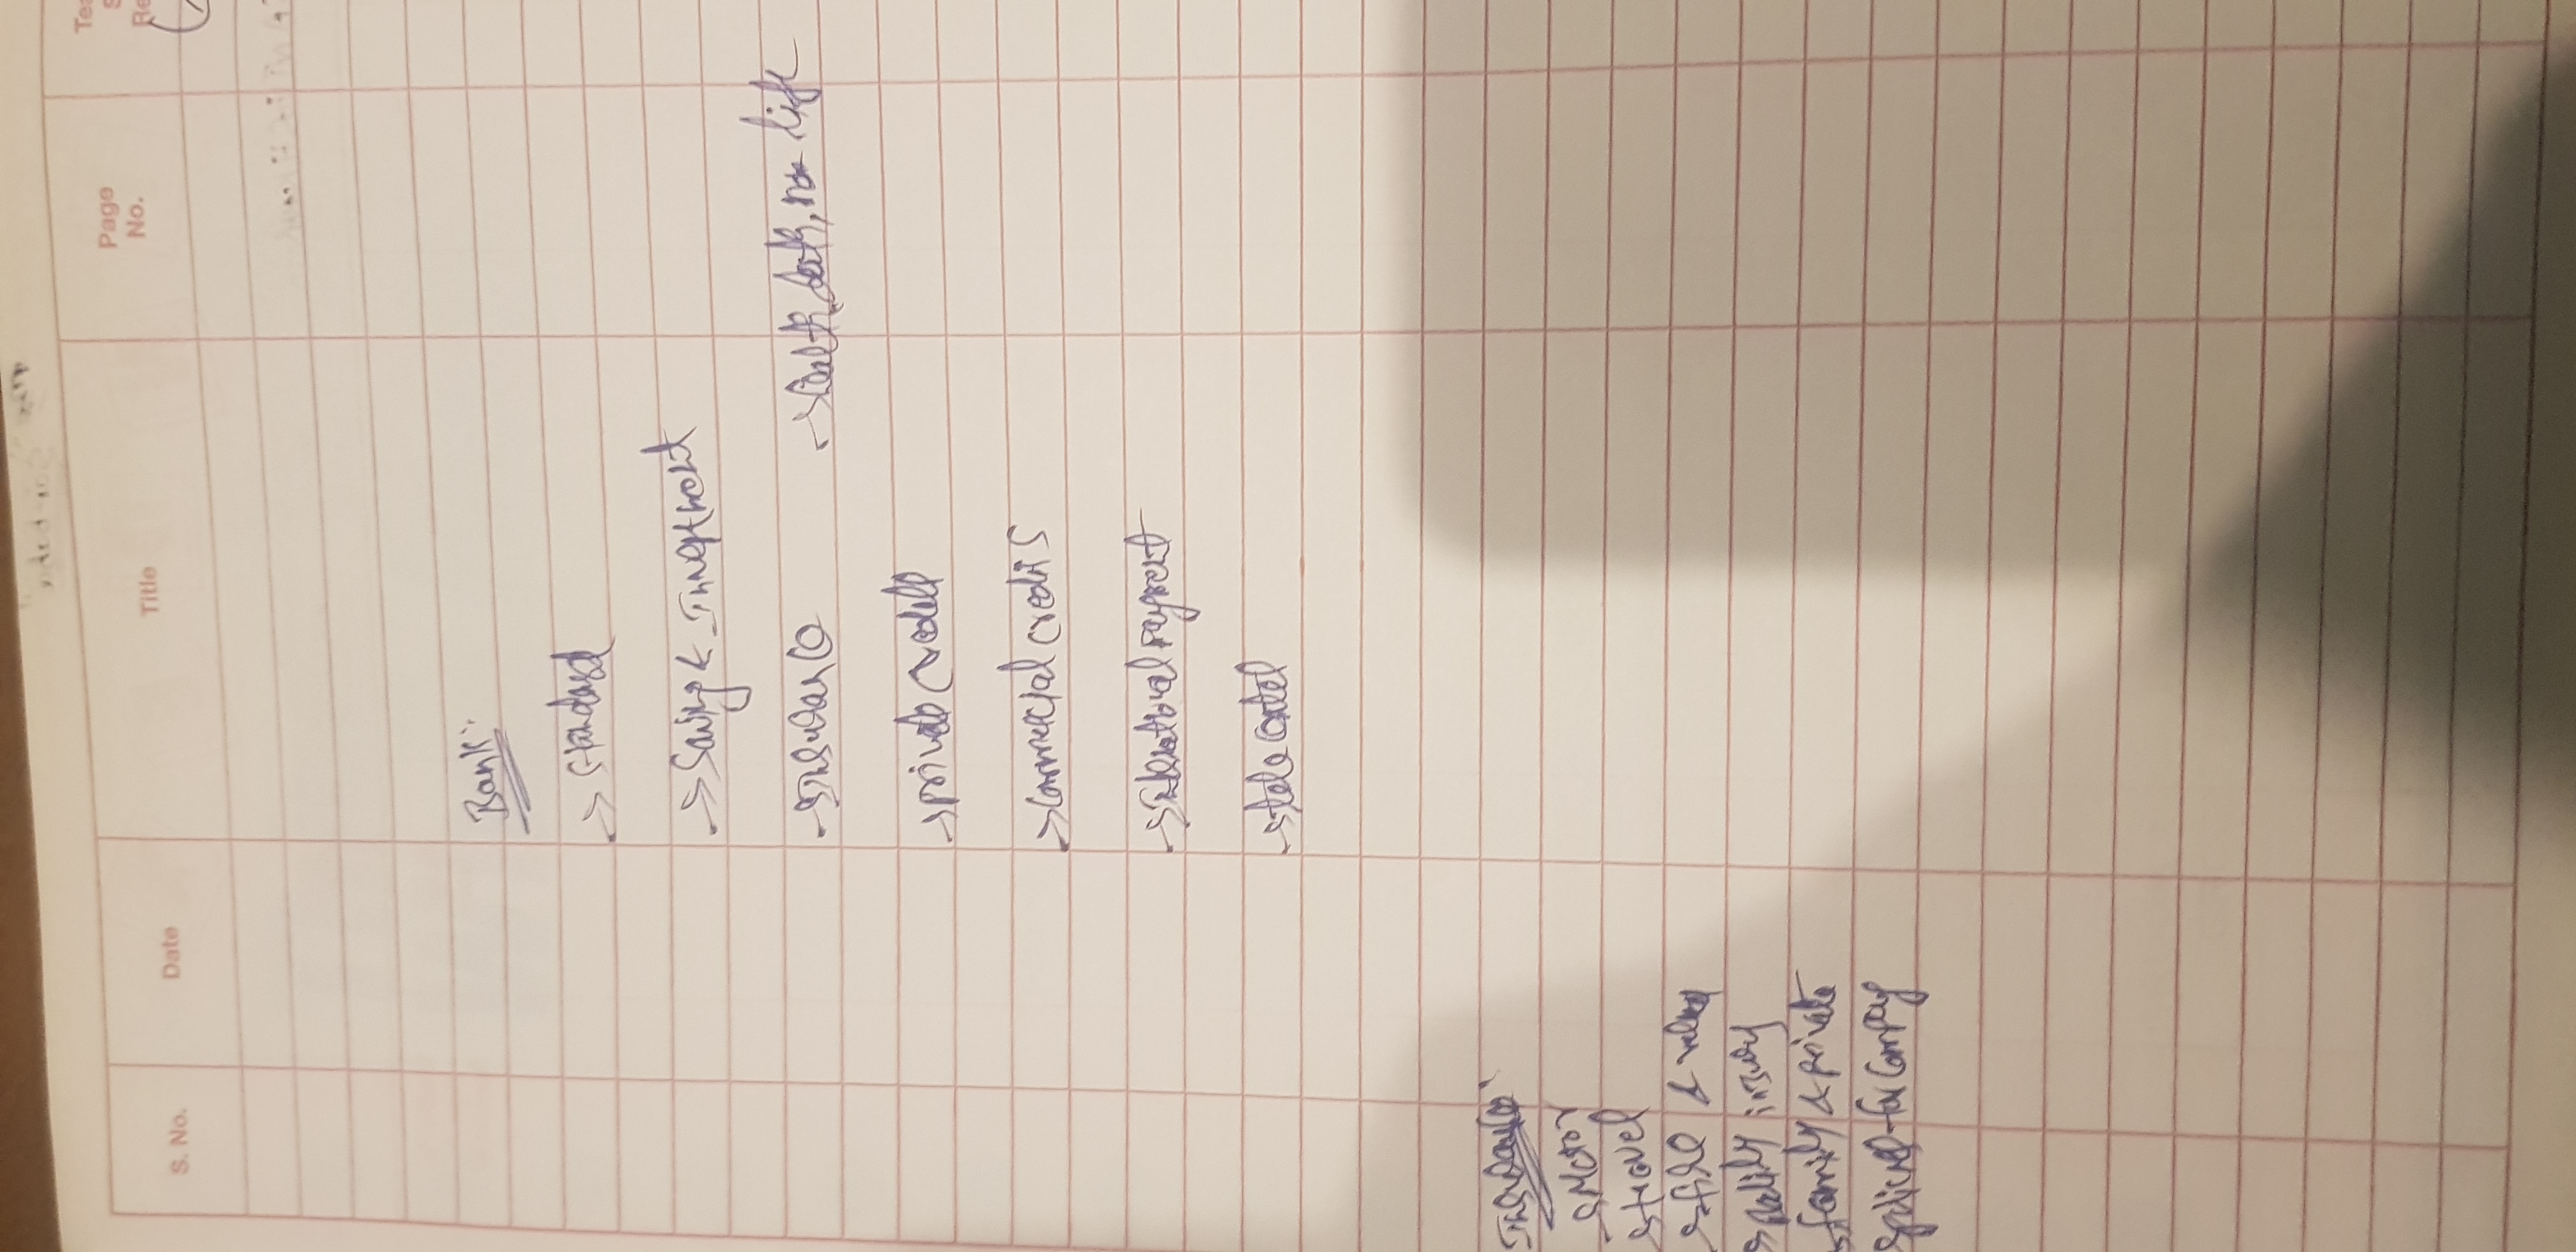 S. No.
Date
Title
Page
No.
Bank:
→ Standard
→ Saving & Investment
→ Insurance → health, death, non life
→ private credit
→ Commercial credits
→ International payment
→ tele
Insurance:
→ Motor
→ travel
→ fire &
injury
→ family & private
→ policies for Company